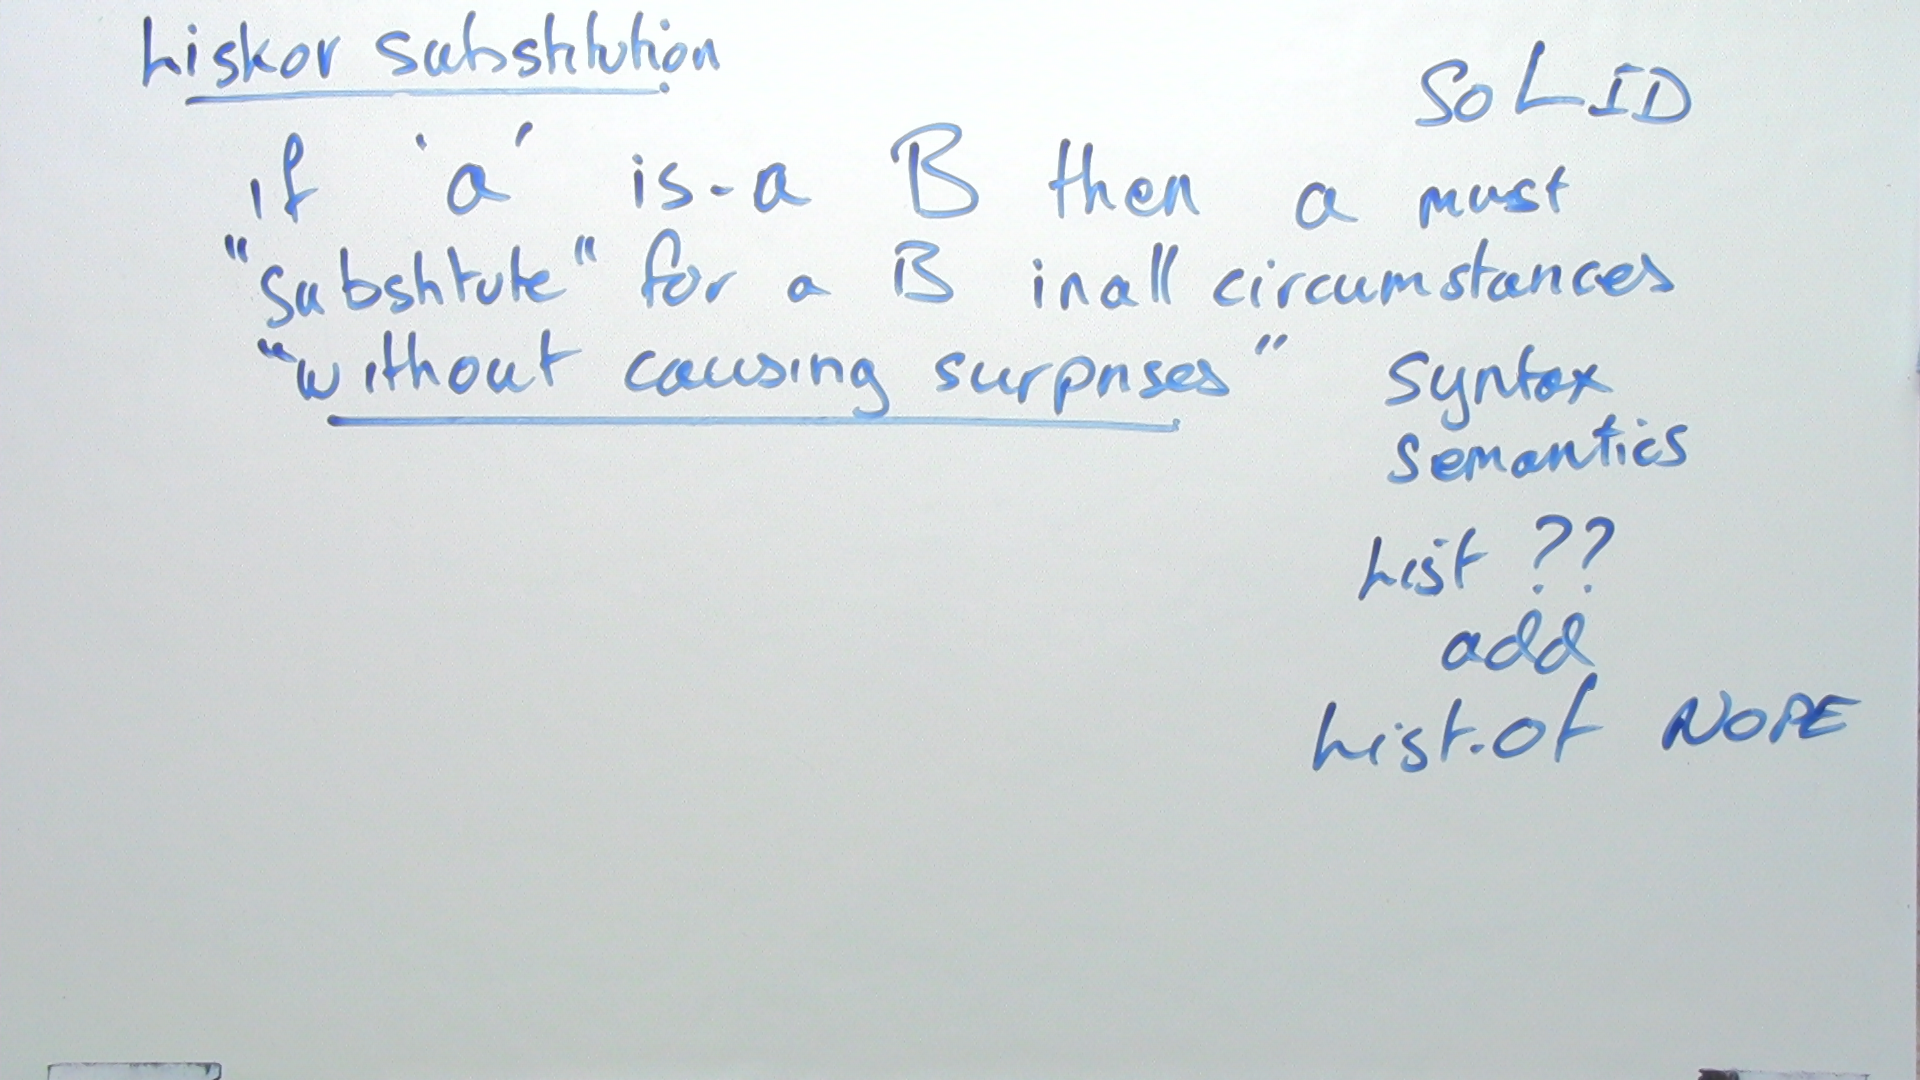 Liskov substitution
SOLID
if 'a' is-a B then a must
"substitute" for a B in all circumstances
"without causing surprises"
syntax
semantics
List ??
add
List.of NOPE